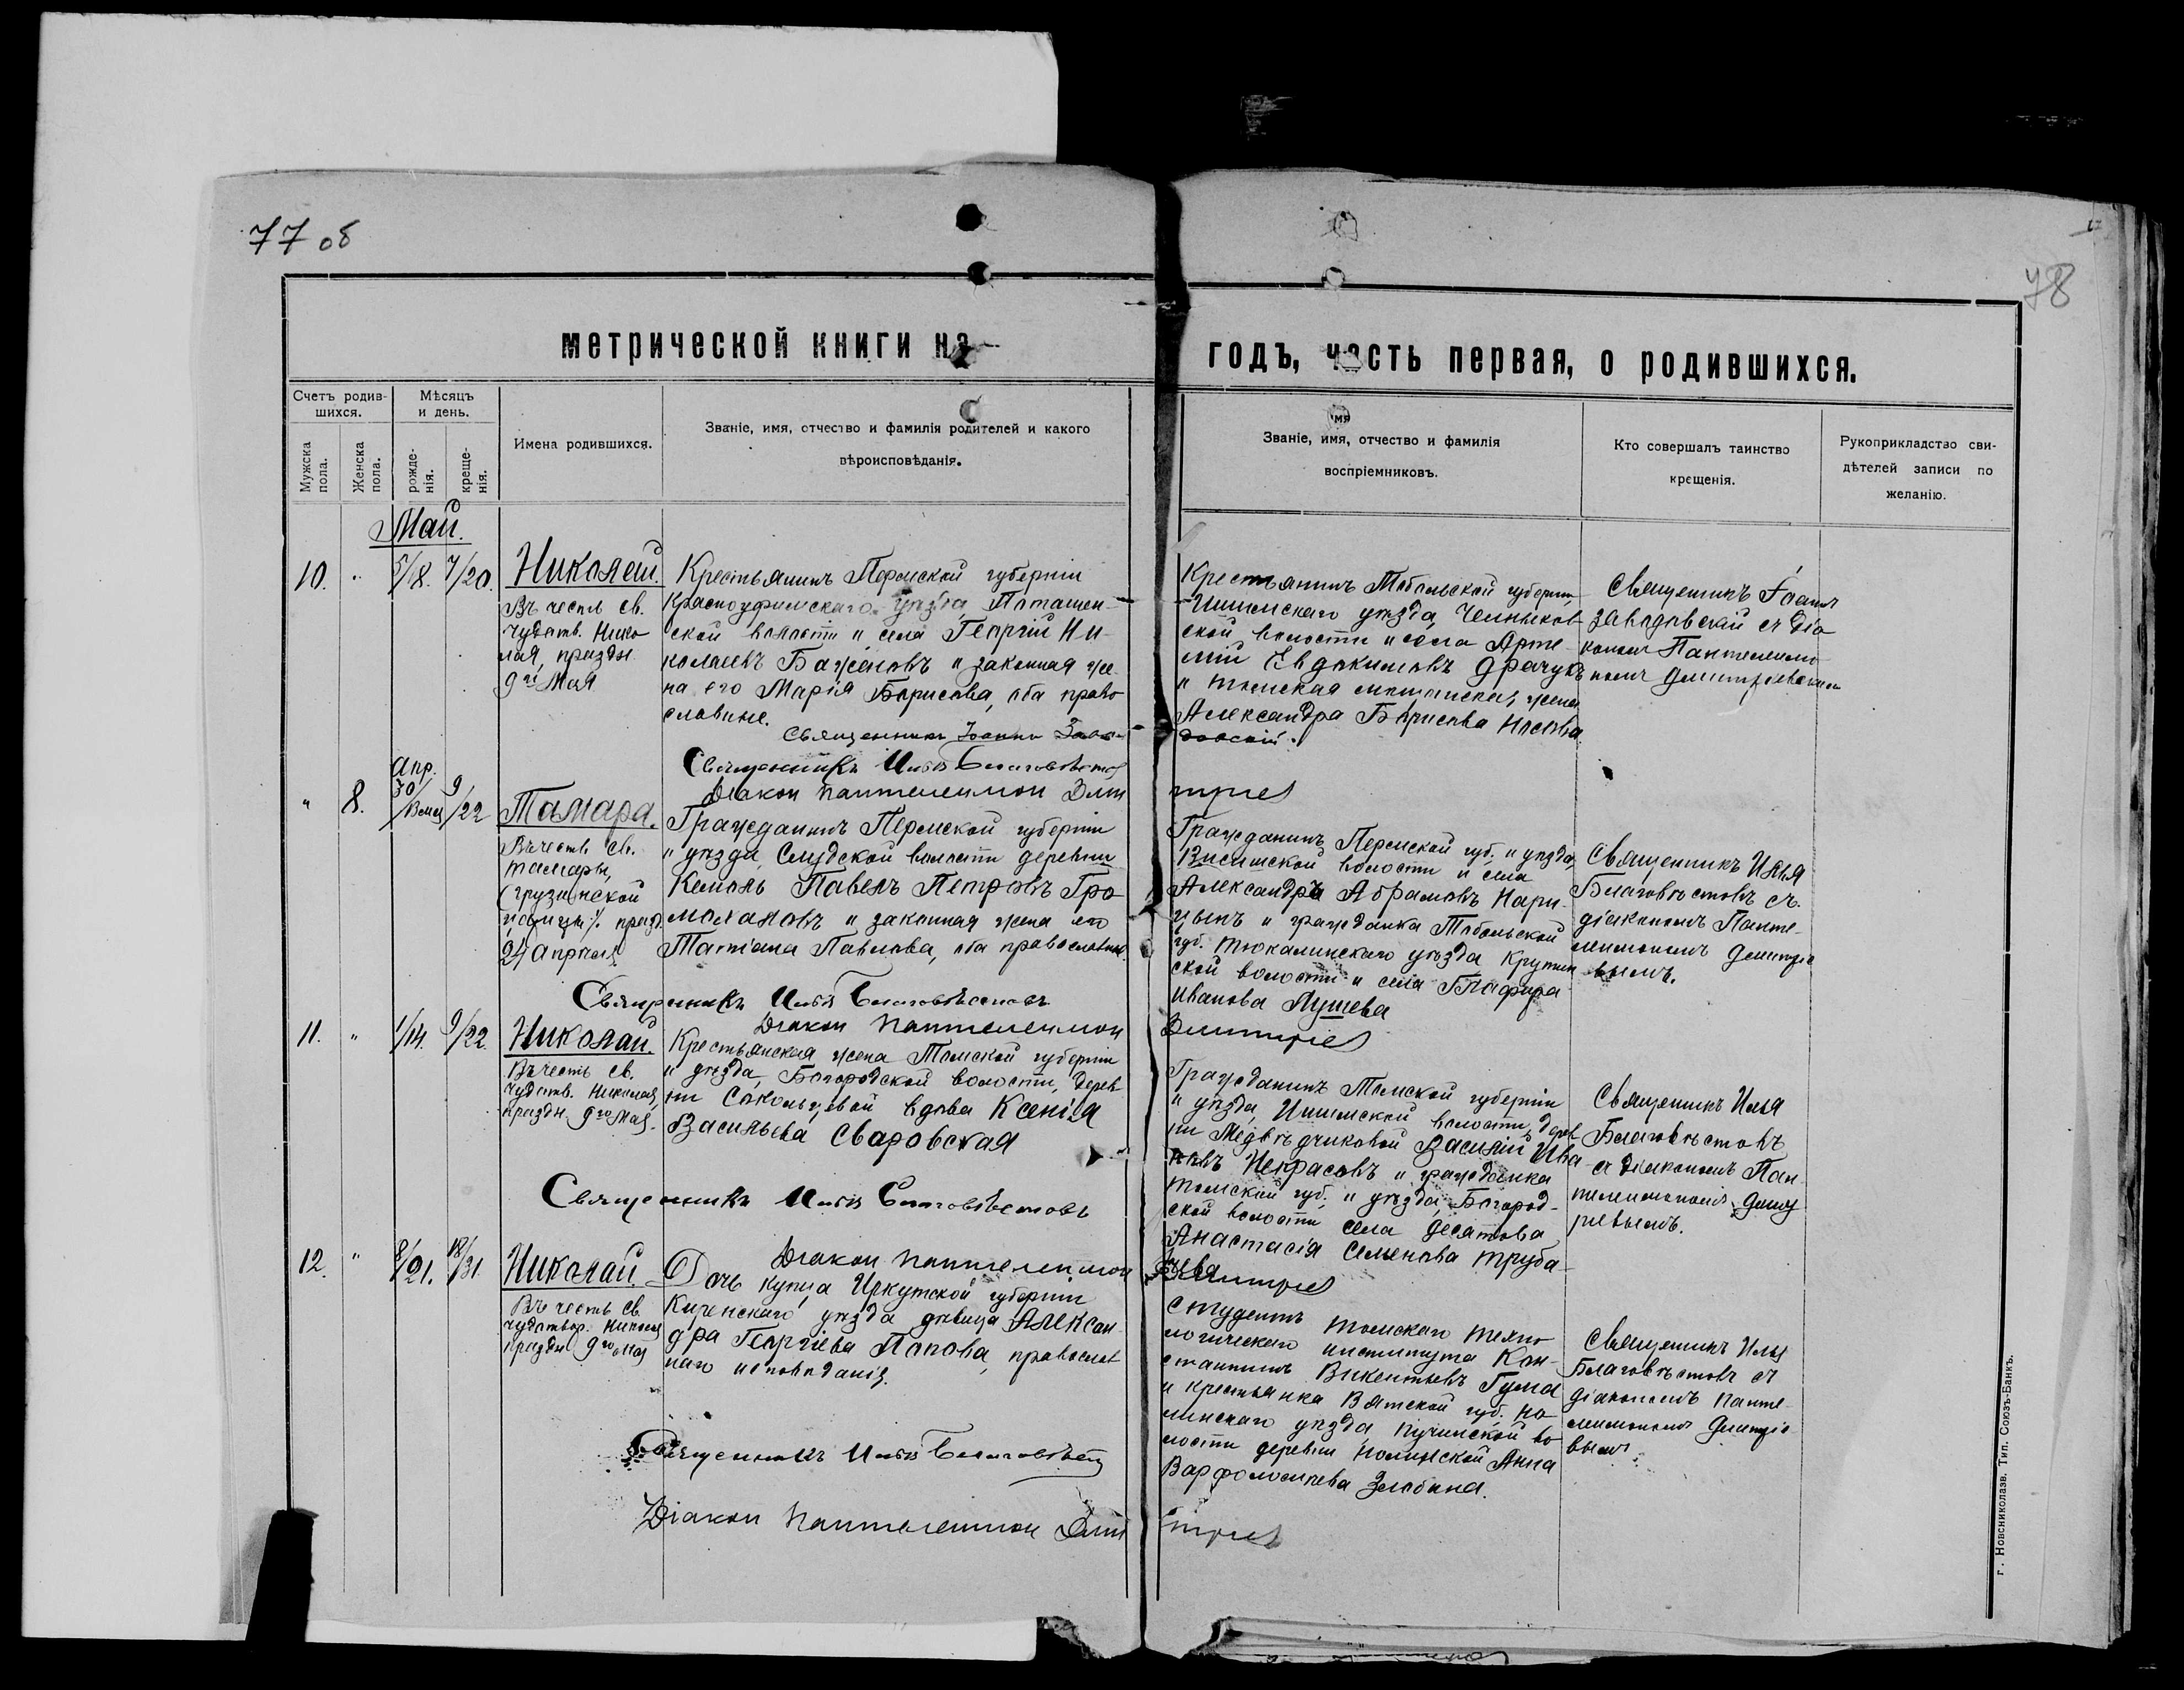 77 об
78
метрической книги на
годъ, часть первая, о родившихся.
Счетъ родив-
шихся.
Мѣсяцъ
и день.
Мужска
пола.
Женска
пола.
рожде-
нія.
креще-
нія.
Имена родившихся.
Званіе, имя, отчество и фамилія родителей и какого
вѣроисповѣданія.
Званіе, имя, отчество и фамилія
воспріемниковъ.
Кто совершалъ таинство
крещенія.
Рукоприкладство сви-
дѣтелей записи по
желанію.
Май.
10.
"
5/18.
7/20.
Николай.
Въ честь св.
чудотв. Нико
лая, праздн
9го Мая
Крестьянинъ Пермской губерніи
Красноуфимскаго уѣзда, Поташен-
ской волости и села Георгій Ни-
колаевъ Баженовъ и законная же
на его Марія Борисова, оба право
славные.
Крестьянинъ Тобольской губерніи
Ишимскаго уѣзда, Челноков
ской волости и села Арте
мій Евдокимовъ Драчукъ
и томская мѣщанска, жена
Александра Борисова Носова
Священникъ Іоаннъ
Заводовскій съ діа
кономъ Пантелеимо
номъ Димитріевымъ
Священникъ Іоаннъ Заво-
довскій.
Священникъ Илія Благовѣстов
Діакон Пантелеимон Дми
тріев
"
8.
Апр.
30/
13 мая
9/22
Тамара.
Въ честь св.
Тамары,
(грузинской
царицы), празд.
24 апрѣля.
Гражданинъ Пермской губерніи
и уѣзда, Слудской волости деревни
Кемоль Павелъ Петровъ Гро
молановъ и законная жена его
Татіана Павлова, оба православные.
Гражданинъ Пермской губ. и уѣзда,
волости и села
Александръ Абрамовъ Нари-
цынъ и гражданка Тобольской
губ. Тюкалинскаго уѣзда Крутин
ской волости и села Глафира
Иванова Лушева
Священникъ Илья
Благовѣстовъ съ
діакономъ Панте-
леимономъ Димитріе
вымъ.
Священникъ Илія Благовѣстовъ
Діакон Пантелеимон
Димитріев
11.
"
1/14.
9/22.
Николай.
Въ честь св.
чудотв. Николая,
праздн. 9го мая.
Крестьянская жена Томской губерніи
и уѣзда, Богородской волости, дерев
ни Сокольцевой вдова Ксенія
Васильева Сваровская
Гражданинъ Томской губерніи
и уѣзда, Ишимской волости, дерев
ни Медвѣдчиковой Василій Ива
новъ Некрасовъ и гражданка
Томской губ. и уѣзда, Богород-
ской волости села Десятова
Анастасія Семенова Труба-
чева
Священникъ Илья
Благовѣстовъ
съ діакономъ Пан-
телеимономъ Дмит
ріевымъ.
Священникъ Илія Благовѣстовъ
Діакон Пантелеимон
Дмитріев
12.
"
8/21.
18/31.
Николай.
Въ честь св.
чудотвор. Николая
праздн 9го мая
Дочь купца Иркутской губерніи
Киренскаго уѣзда дѣвица Алексан
дра Георгіева Попова, православ
наго исповѣданія.
Студентъ Томскаго Техно
логическаго института Кон-
стантинъ Викентьевъ Гума
и крестьянка Вятской губ. Но
линскаго уѣзда, во
лости деревни Анна
Варфоломеева Злобина.
Священникъ Илья
Благовѣстовъ съ
діакономъ Панте-
леимономъ Димитріе
вымъ
Священникъ Илія Благовѣстов
Діакон Пантелеимон Дми
тріев
г. Новониколаев. Тип. Союзъ-Банкъ.